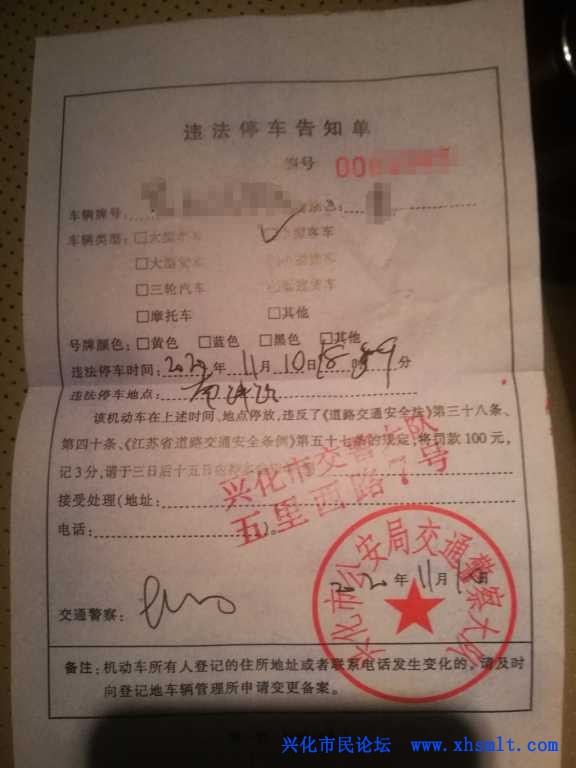 违法停车告知单
编号 00
车辆牌号:
车辆类型: □大型客车 客车
□大型货车
□三轮汽车
□摩托车 □其他
号牌颜色: □黄色 □蓝色 □黑色 □其他
违法停车时间: 年 11 月 10 日 18 时 分
违法停车地点:
该机动车在上述时间、地点停放,违反了《道路交通安全法》第三十八条、
第四十条、《江苏省道路交通安全条例》第五十七条的规定,将罚款100元,
记3分,请于三日后十五日内
接受处理(地址:
电话: )。
兴化市交警大队
五里西路7号
年 11 月 日
交通警察:
兴化市公安局交通警察大队
备注:机动车所有人登记的住所地址或者联系电话发生变化的,请及时
向登记地车辆管理所申请变更备案。
兴化市民论坛 www.xhsmlt.com